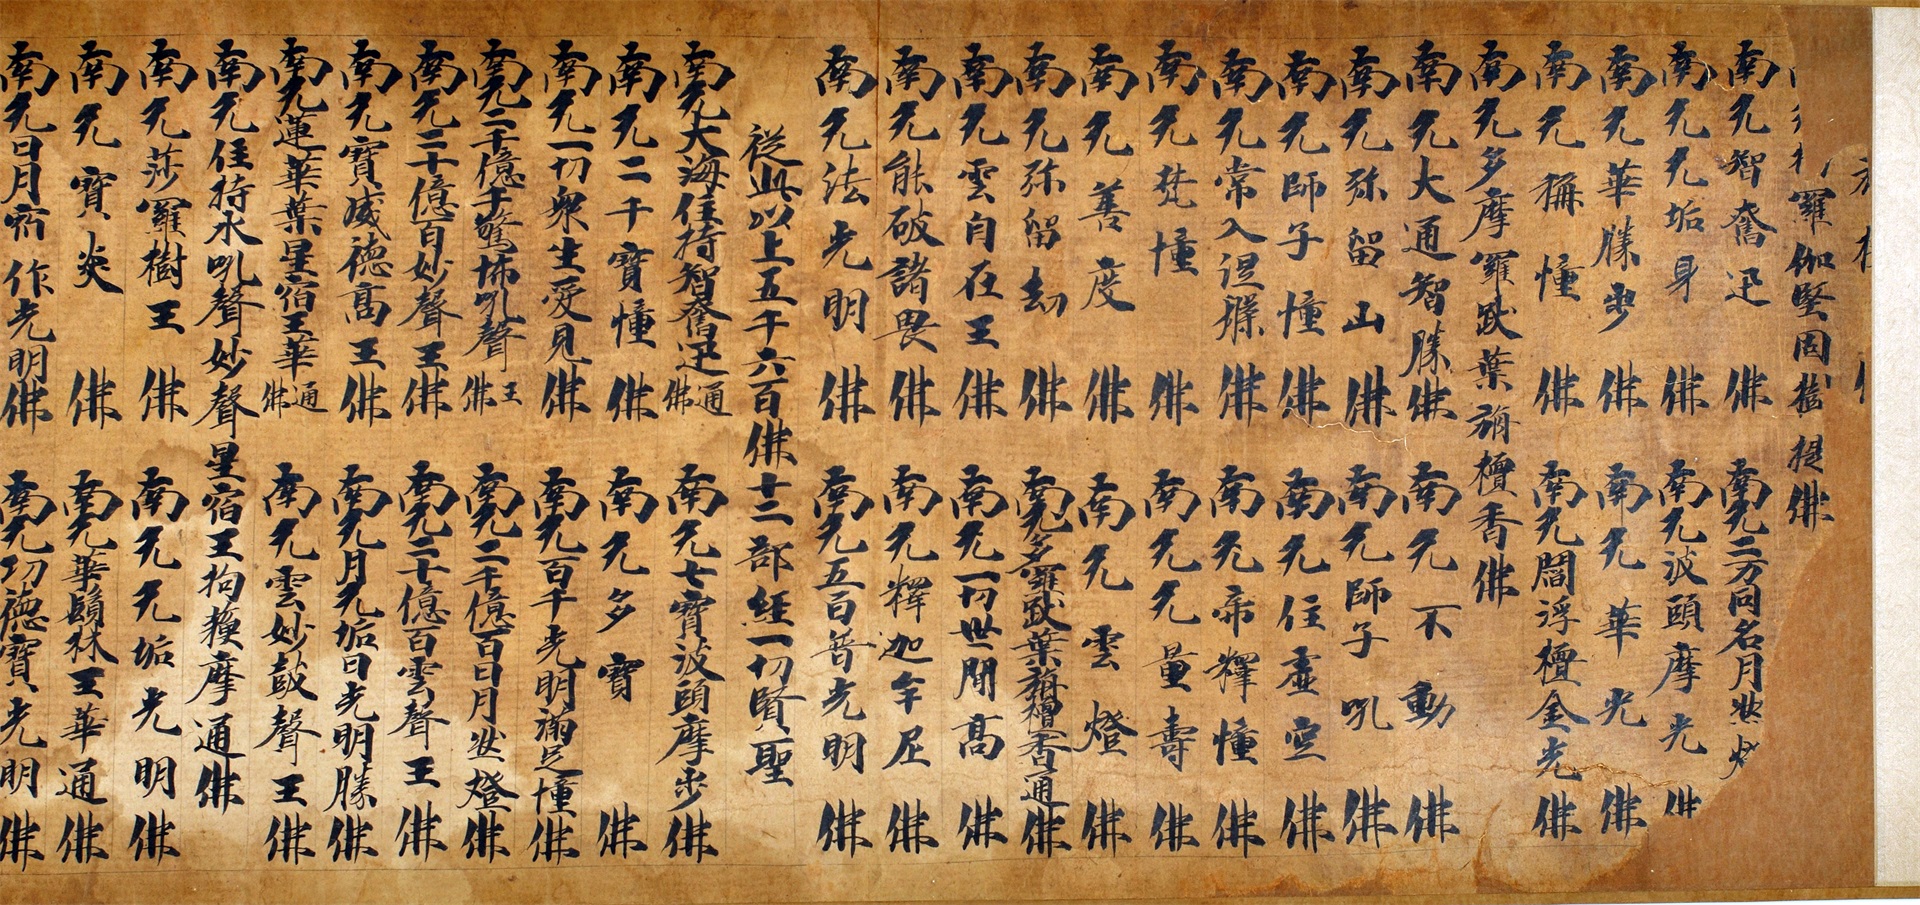 羅伽堅固提佛
南无智奮迅佛 南无二万同名月燃
南无无垢身佛 南无波頭摩光佛
南无華勝步佛 南无華光佛
南无稱幢佛 南无閻浮檀金光佛
南无多摩羅跋葉旃檀香佛
南无大通智勝佛 南无不動佛
南无弥留山佛 南无師子吼佛
南无師子幢佛 南无住虛空佛
南无常入涅槃佛 南无帝釋幢佛
南无梵幢佛 南无无量壽佛
南无善度佛 南无雲燈佛
南无弥留劫佛 南无多羅跋葉旃檀香通佛
南无雲自在王佛 南无一切世間高佛
南无能破諸畏佛 南无釋迦牟尼佛
南无法光明佛 南无五百普光明佛
從此以上五千六百佛十二部經一切賢聖
南无大海住持智奮迅通佛 南无七寶波頭摩步佛
南无二千寶幢佛 南无多寶佛
南无一切眾生愛見佛 南无百千光明滿足幢佛
南无二千億千驚怖吼聲王佛 南无二千億百日月燃燈佛
南无二十億百妙聲王佛 南无二十億百雲聲王佛
南无寶威德高王佛 南无月无垢日光明勝佛
南无蓮華葉星宿王華通佛 南无雲妙鼓聲王佛
南无住持水吼聲妙聲星宿王拘蘓摩通佛
南无莎羅樹王佛 南无无垢光明佛
南无寶炎佛 南无華鬚林王華通佛
南无日月宿作光明佛 南无功德寶光明佛